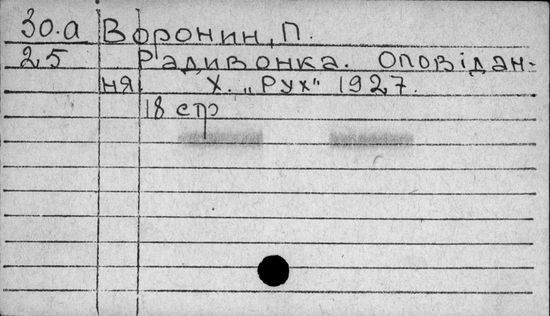 30.a Воронин, П.
25 Радивонка. Оповідан-
ня. Х. „Рух" 1927.
18 стр